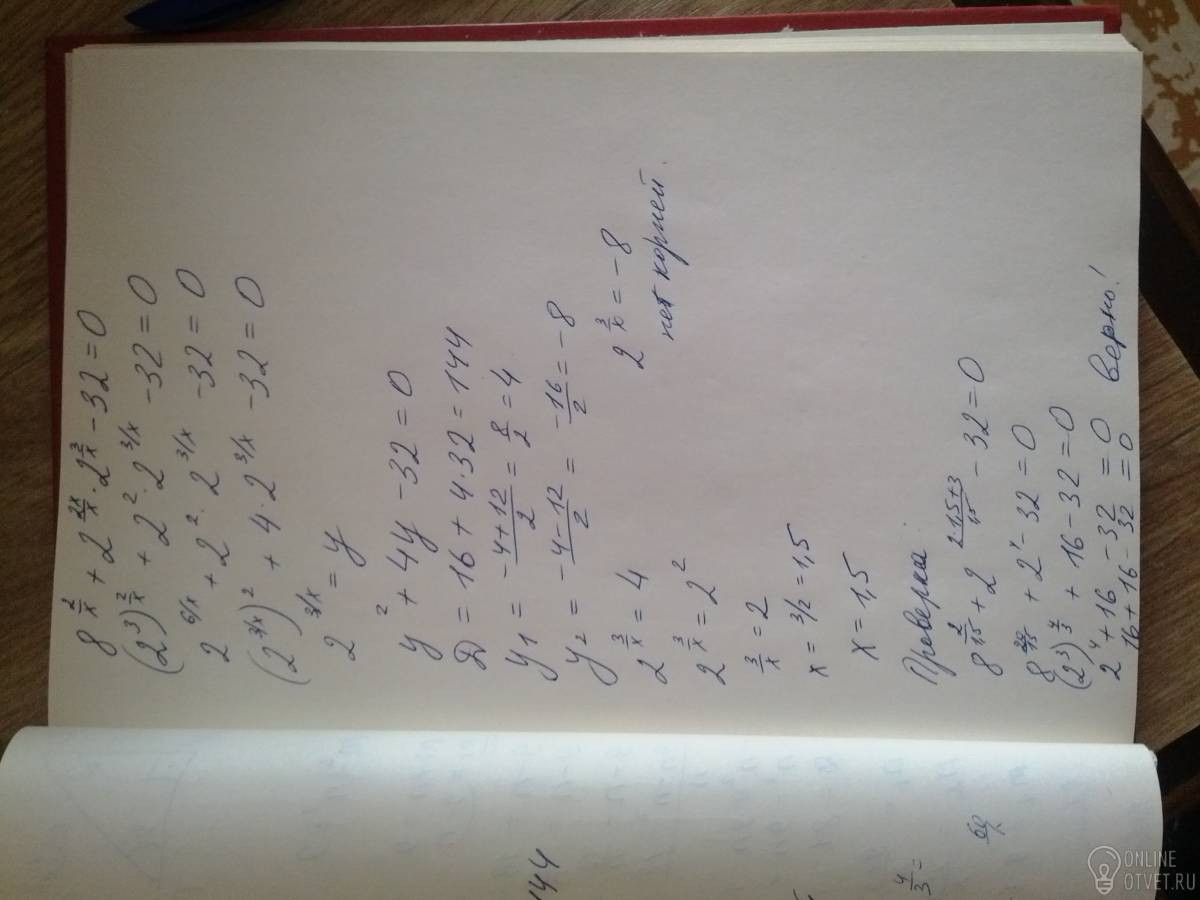 8^{2/x} + 2^{2x/x} · 2^{3/x} - 32 = 0
(2^3)^{2/x} + 2^2 · 2^{3/x} - 32 = 0
2^{6/x} + 2^2 · 2^{3/x} - 32 = 0
(2^{3/x})^2 + 4 · 2^{3/x} - 32 = 0
2^{3/x} = y
y^2 + 4y - 32 = 0
D = 16 + 4·32 = 144
y1 = (-4+12)/2 = 8/2 = 4
y2 = (-4-12)/2 = -16/2 = -8
2^{3/x} = 4 2^{3/x} = -8
2^{3/x} = 2^2 нет корней.
3/x = 2
x = 3/2 = 1,5
x = 1,5
Проверка
8^{2/1,5} + 2^{(2·1,5+3)/1,5} - 32 = 0
8^{20/15} + 2^4 - 32 = 0
(2^3)^{4/3} + 16 - 32 = 0
2^4 + 16 - 32 = 0
16 + 16 - 32 = 0 верно!
144
4/3 =
ONLINE
OTVET.RU